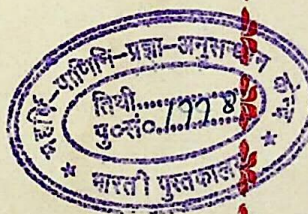 महर्षि-पाणिनि-प्रज्ञा-अनुसन्धान
तिथी..............
पु०सं० 1778
* भारती पुस्तकालय *